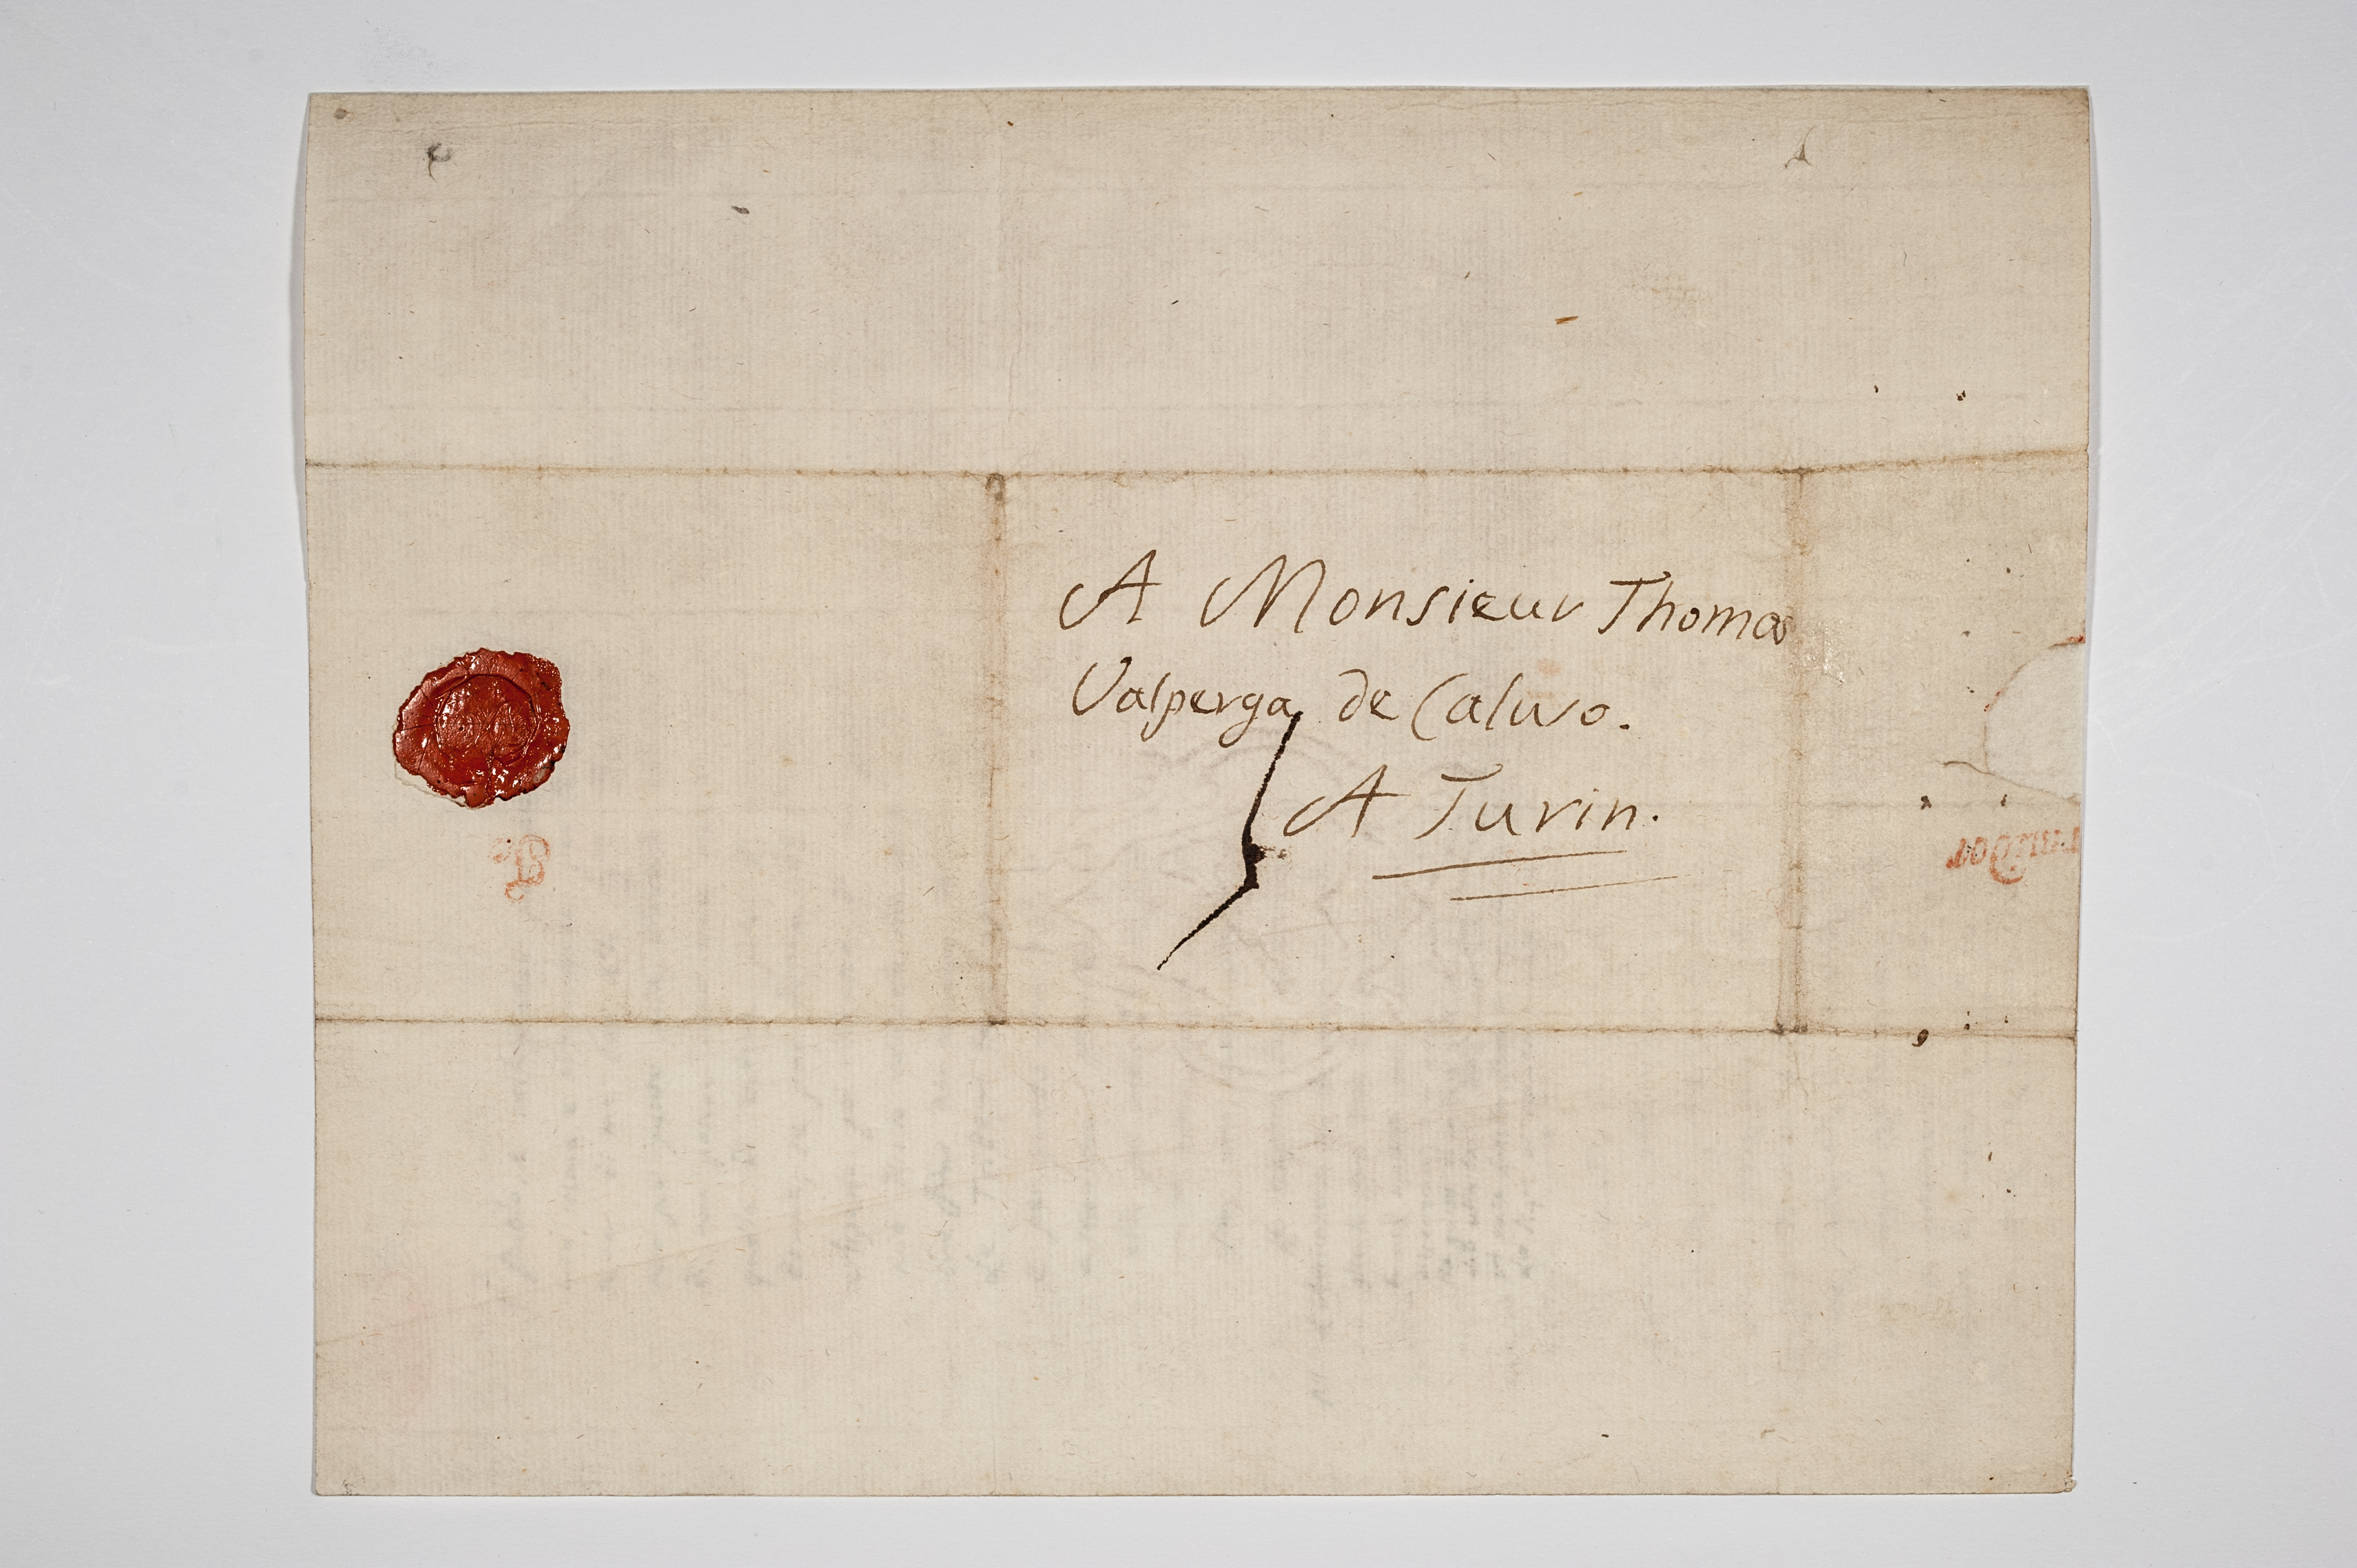 A Monsieur Thomas
Valperga de Caluso.
A Turin.